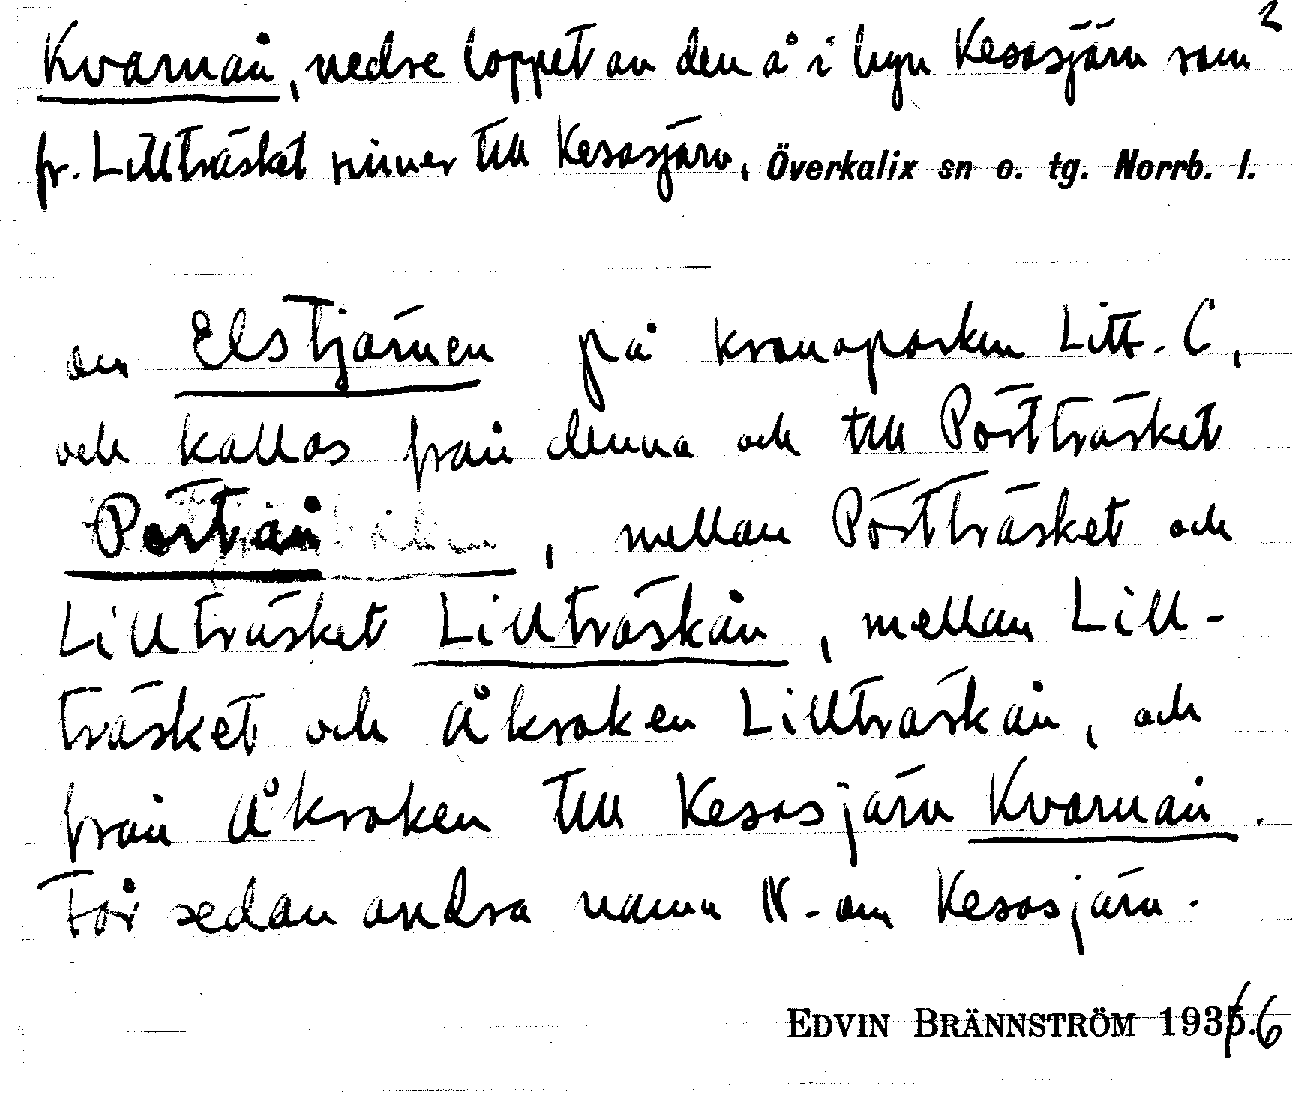 2
Kvarnån, nedre loppet av den å i byn Kesasjärv som
fr. Lillträsket rinner till Kesasjärv, Överkalix sn o. tg. Norrb. l.
om Elstjärnen på kronoparken Litt. C,
och kallas från denna och till Pörtträsket
Pörtån, mellan Pörtträsket och
Lillträsket Lillträskån, mellan Lill-
träsket och Åkroken Lillträskån, och
från Åkroken till Kesasjärv Kvarnån.
Får sedan andra namn N. om Kesasjärv.
EDVIN BRÄNNSTRÖM 193 6